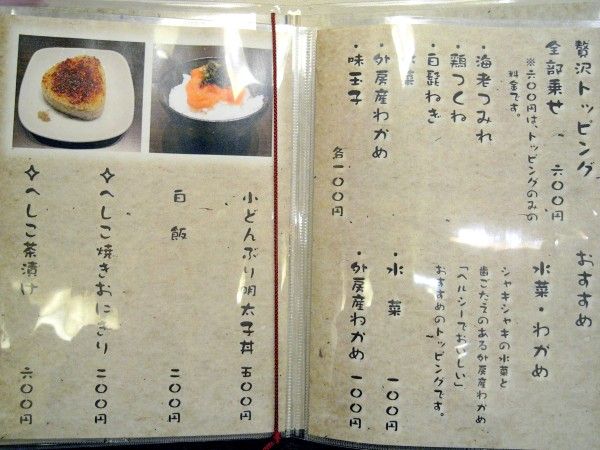 贅沢トッピング
全部乗せ 六〇〇円
※六〇〇円は、トッピングのみの
料金です。
・海老つみれ
・鶏つくね
・白髭ねぎ
・水菜
・外房産わかめ
・味玉子
各一〇〇円
おすすめ
水菜・わかめ
シャキシャキの水菜と
歯ごたえのある外房産わかめ
「ヘルシーでおいしい」
おすすめのトッピングです。
・水菜 一〇〇円
・外房産わかめ 一〇〇円
小どんぶり明太子丼 五〇〇円
白飯 二〇〇円
✧へしこ焼きおにぎり 二〇〇円
✧へしこ茶漬け 六〇〇円